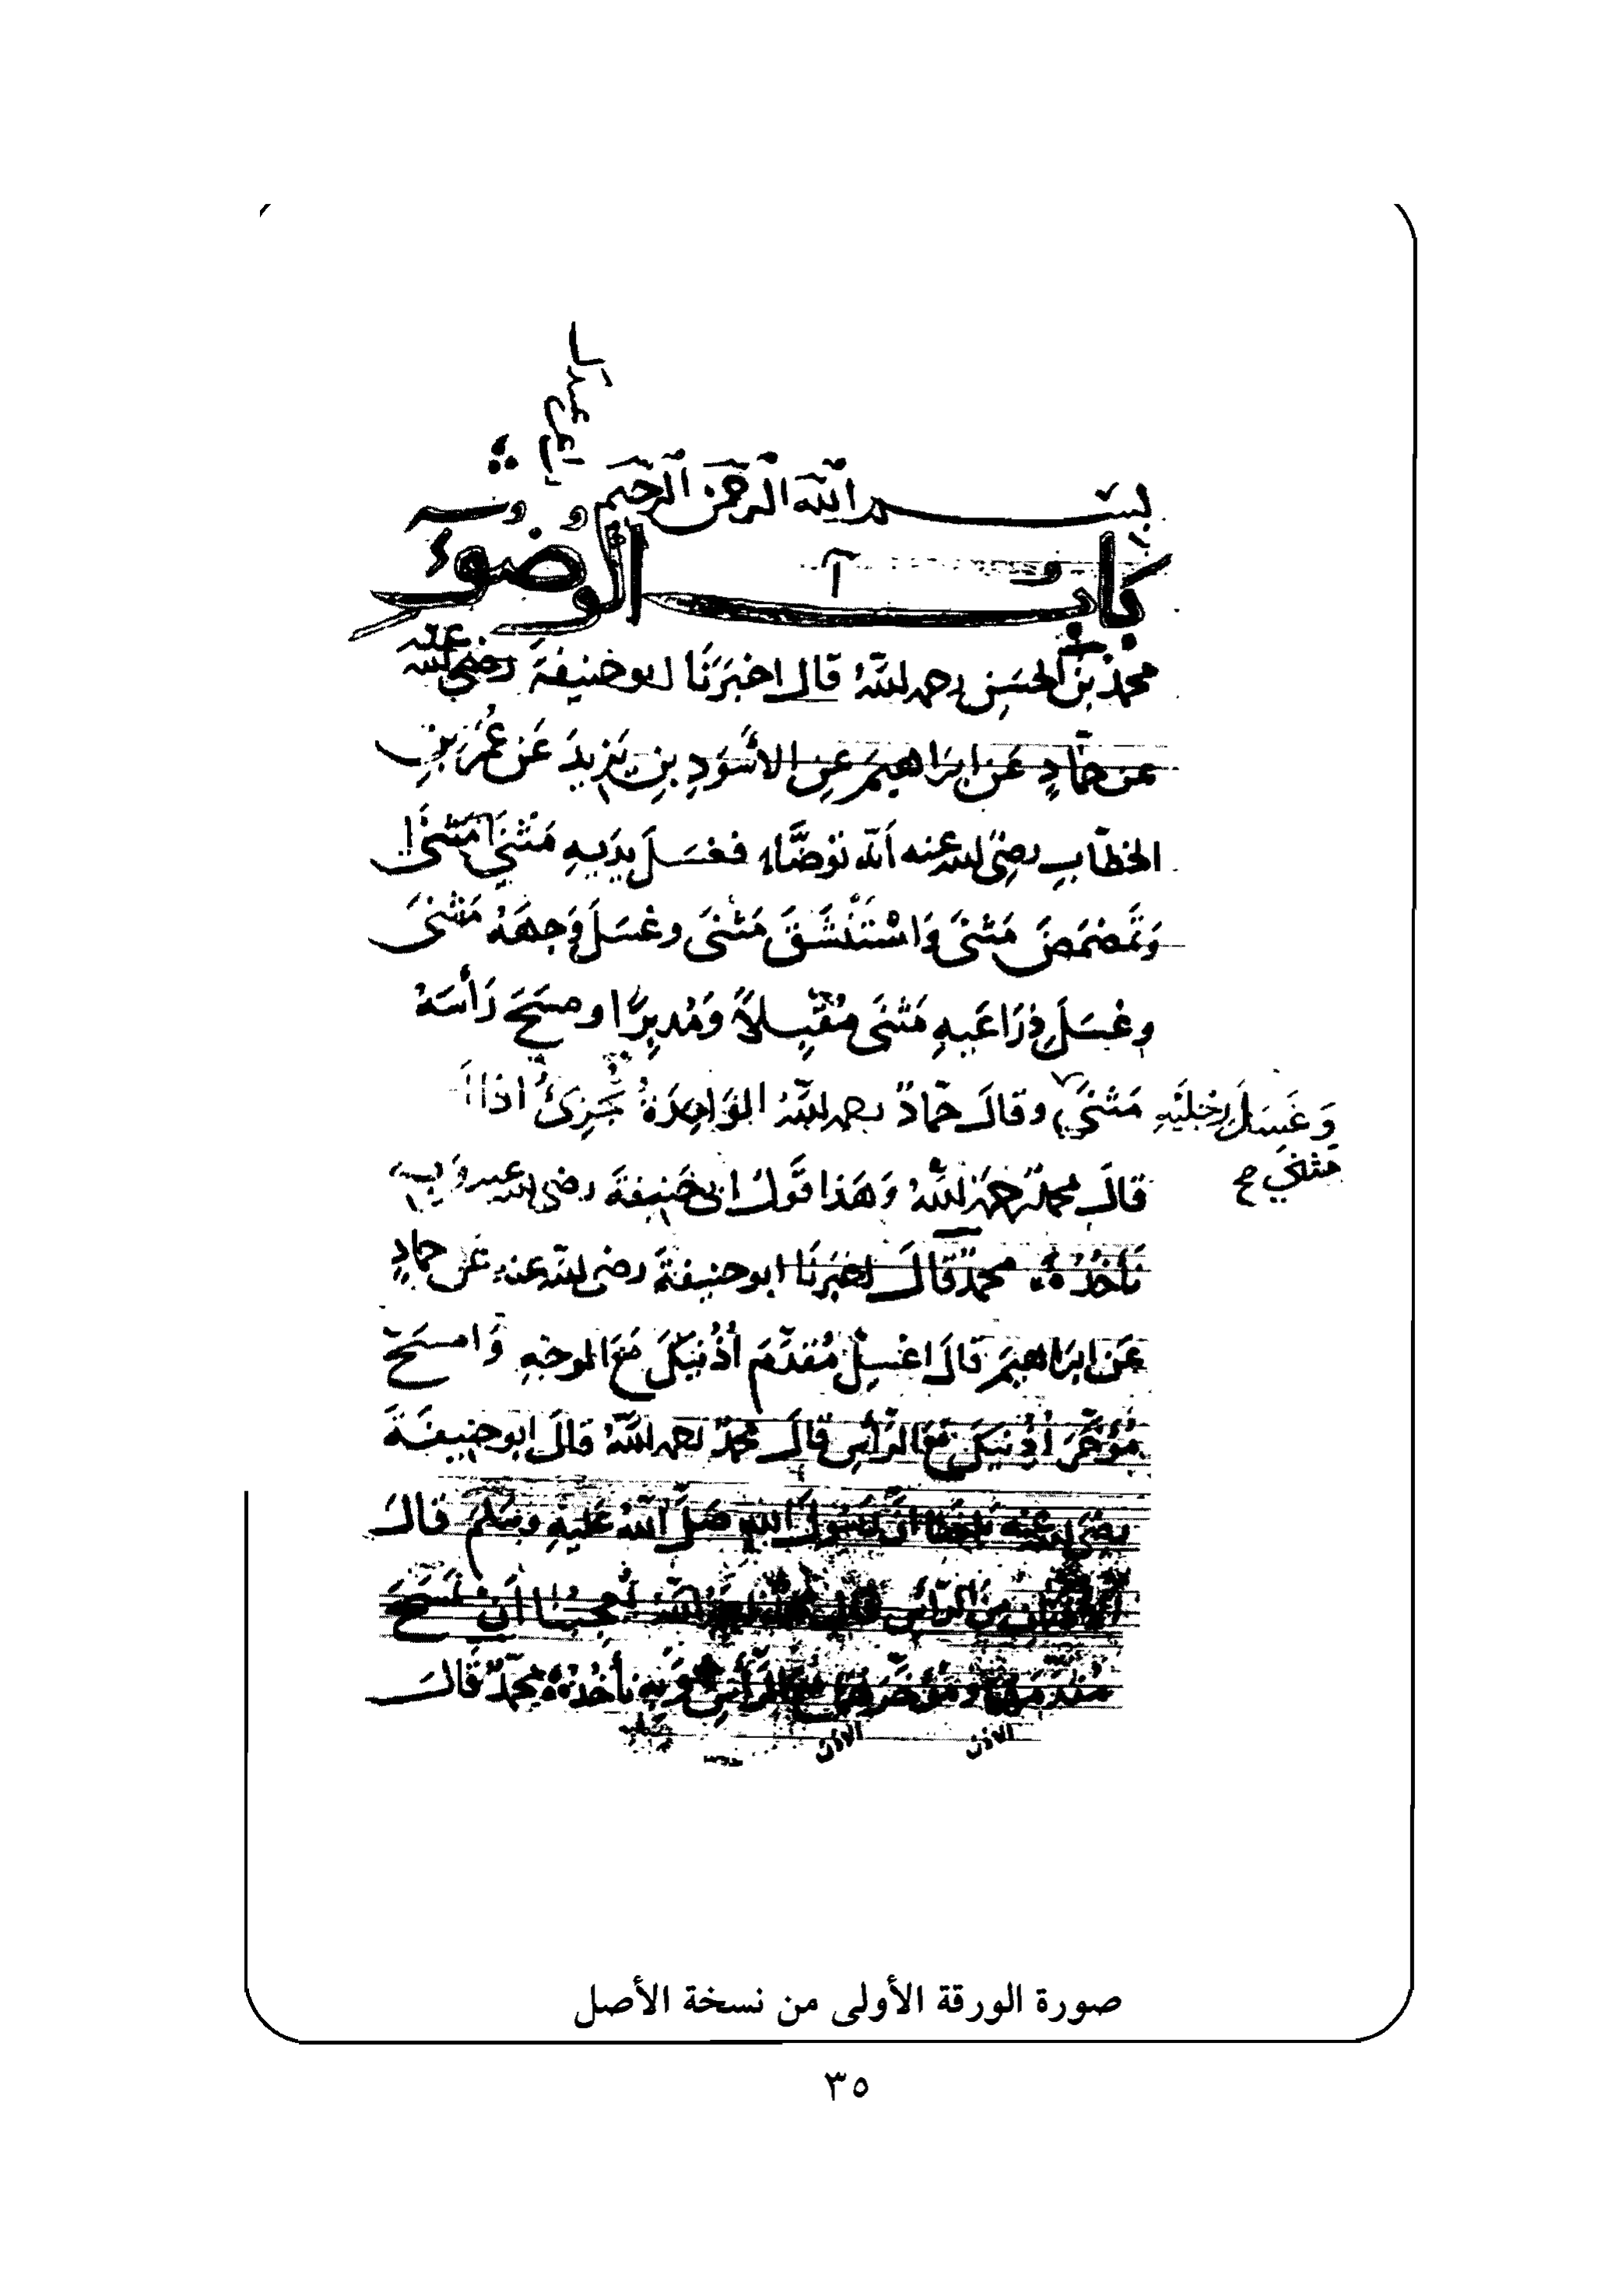 بسم الله الرحمن الرحيم
باب الوضوء
محمد بن الحسن رحمه الله قال اخبرنا ابو حنيفة رضي الله عنه
عن حمّادٍ عَن ابرَاهيمَ عن الأسْوَدِ بنِ يَزيدَ عَن عُمَرَ بنِ
الخطّابِ رضى الله عنه أنّه توَضّاء فغسَلَ يدَيهِ مَثنَى مَثنَى
وَتمَضمَضَ مَثنَى وَاسْتَنشَقَ مَثنَى وغسَلَ وَجهَهُ مَثنَى
وغسَلَ ذِرَاعَيهِ مَثنَى مُقبِلاً وَمُدبِرًا ومسَحَ رَأسَهُ
مَثنَى وقالَ حمّادٌ رحمه الله الوَاحِدَةُ تجزِئُ اذا
وَغَسَلَ رِجْلَيْهِ
مَثْنَى صح
قالَ محمدٌ رحمَهُ اللهُ وَهَذا قَولُ ابى حَنيفةَ رضى الله عنه وَبِهِ
نَاخُذُ محمّدٌ قَالَ اخبَرَنَا ابو حنيفةَ رضى الله عنه عَن حمادٍ
عَن ابرَاهيمَ قالَ اغسِلْ مُقدَّمَ أُذُنَيكَ مَعَ الوجهِ وَامسَحْ
مُؤخَّرَ أُذُنَيكَ مَعَ الرَأسِ قالَ محمدٌ رحمه اللهُ قالَ ابو حنيفَةَ
رضى الله عنه بلغنا انَّ رَسُولَ اللهِ صَلَّى اللهُ عَليهِ وسَلمَ قالَ
الأذنان من الرَأسِ قال محمد رحمه اللهُ يُعجبُنا أن نمسَحَ
مُقدَّمَهما ومُؤخَّرَهُمَا مَعَ الرَّأسِ وَبِهِ نأخُذُ محمّدٌ قَالَ
الاذن الاذن
صورة الورقة الأولى من نسخة الأصل
٣٥